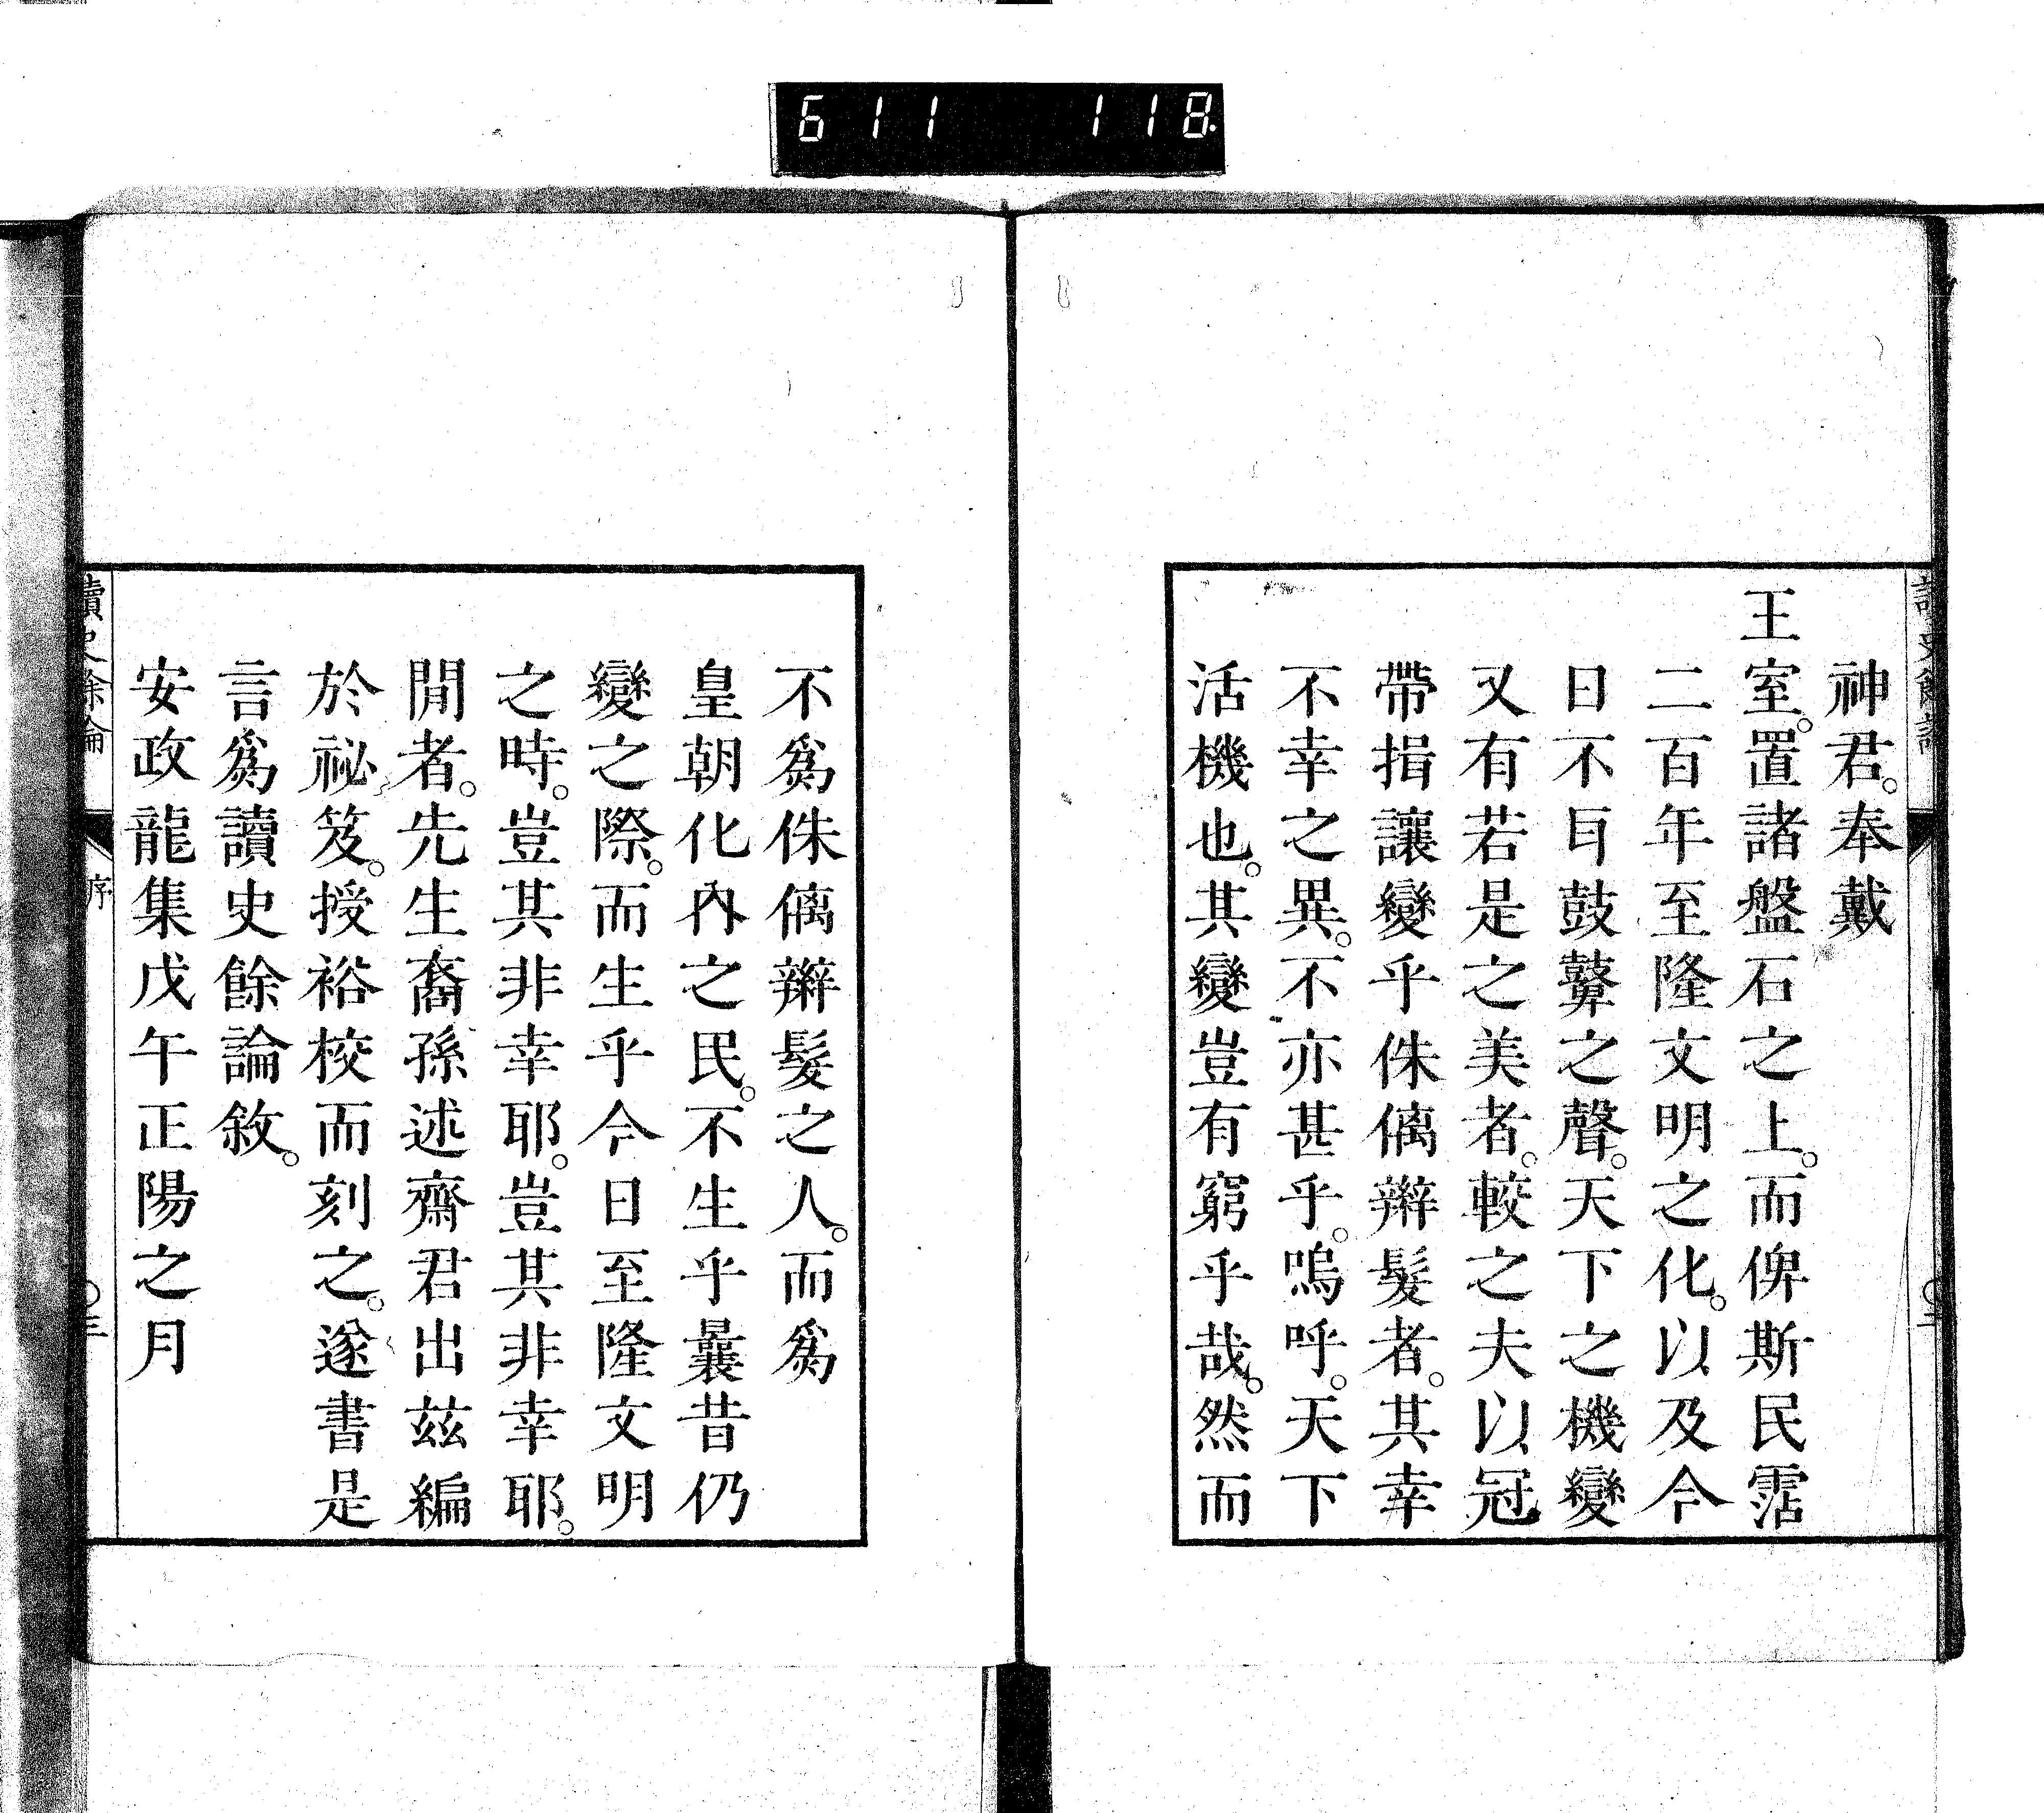 6 1 1 1 1 8.
神君。奉戴
王室。置諸盤石之上。而俾斯民霑
二百年至隆文明之化。以及今
日不耳鼓鼙之聲。天下之機變
又有若是之美者。較之夫以冠
帶揖讓變乎侏𠌯辮髮者。其幸
不幸之異。不亦甚乎。嗚呼。天下
活機也。其變豈有窮乎哉。然而
不爲侏𠌯辮髮之人。而爲
皇朝化內之民。不生乎曩昔仍
變之際。而生乎今日至隆文明
之時。豈其非幸耶。豈其非幸耶。
間者。先生裔孫述齋君出茲編
於祕笈。授裕校而刻之。遂書是
言爲讀史餘論敘。
安政龍集戊午正陽之月
讀史餘論 序 〇三